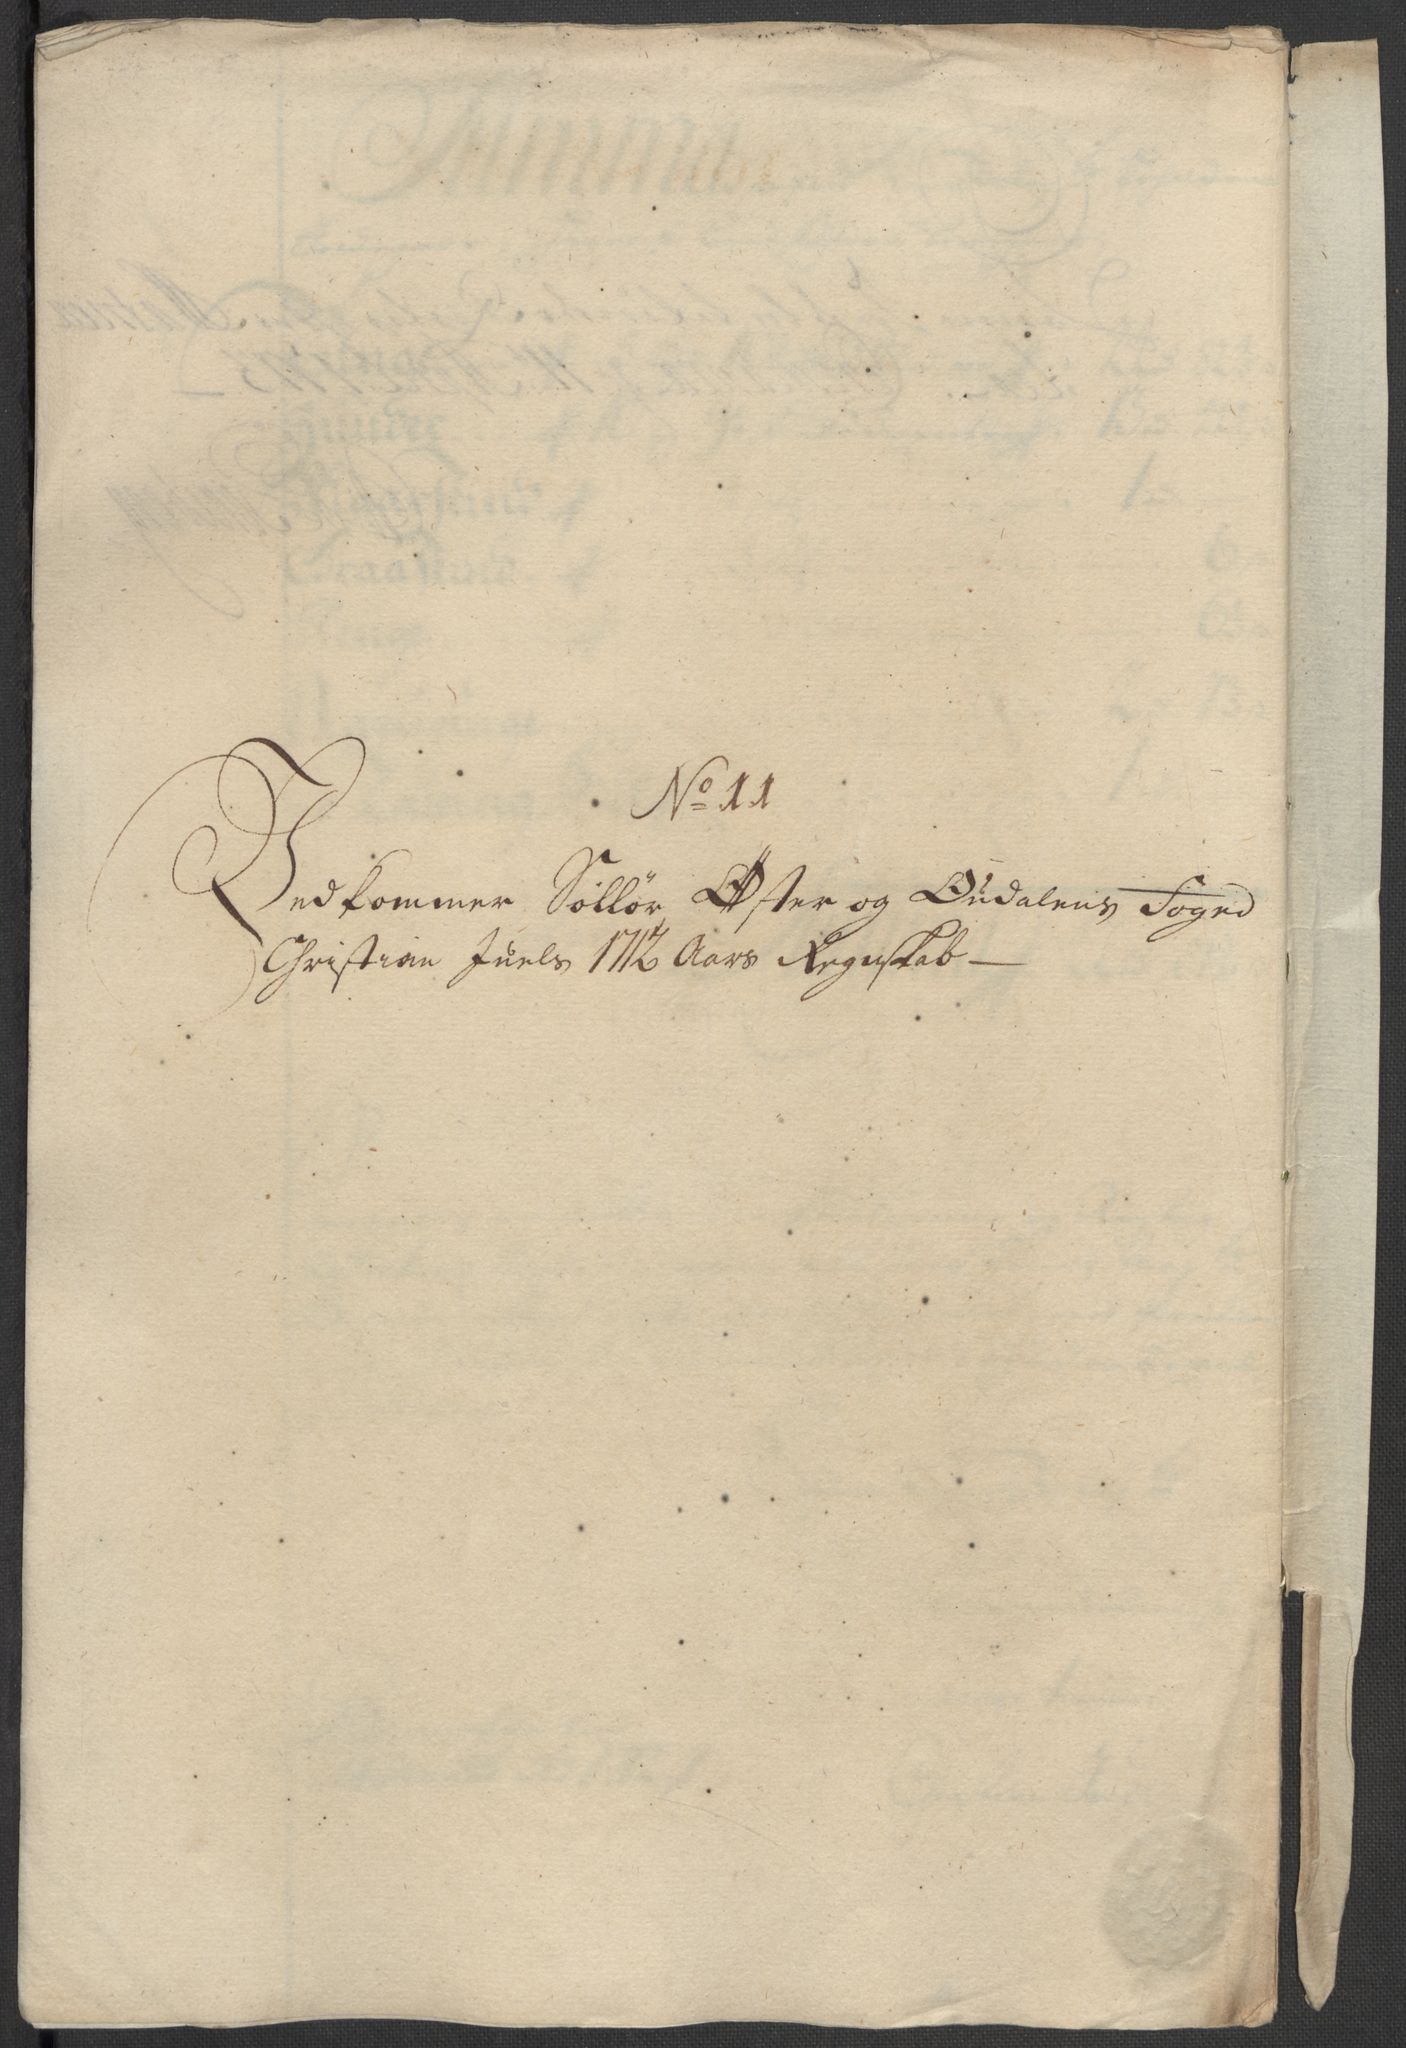 No 11
Vedkommer Sollör, Öster og Oudalens Foged
Christian Juels 1712 Aars Regnskab —